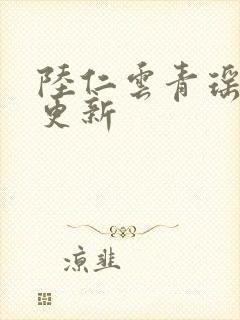 陸仁雲青瑶
更新
涼韭